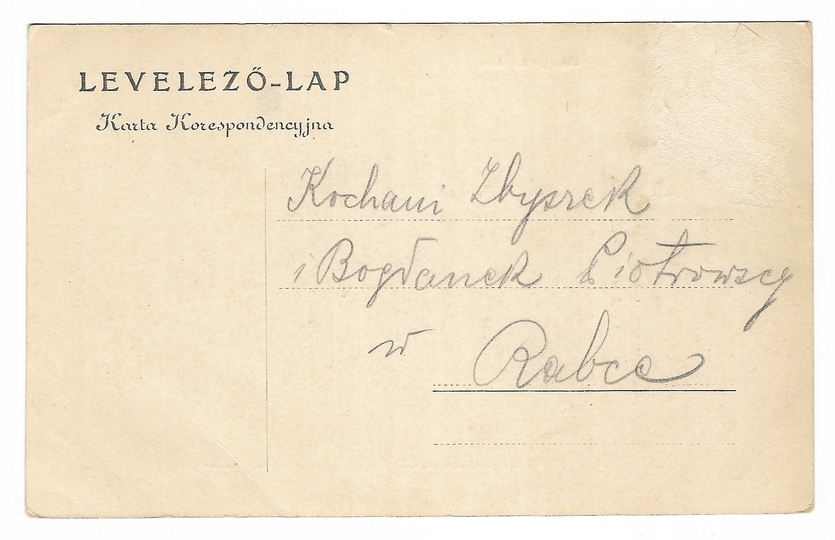 LEVELEZŐ-LAP
Karta Korespondencyjna
Kochani Zbyszek
i Bogdanek Piotrowscy
w
Rabce